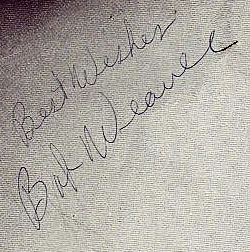 Best Wishes
Bob Weaver